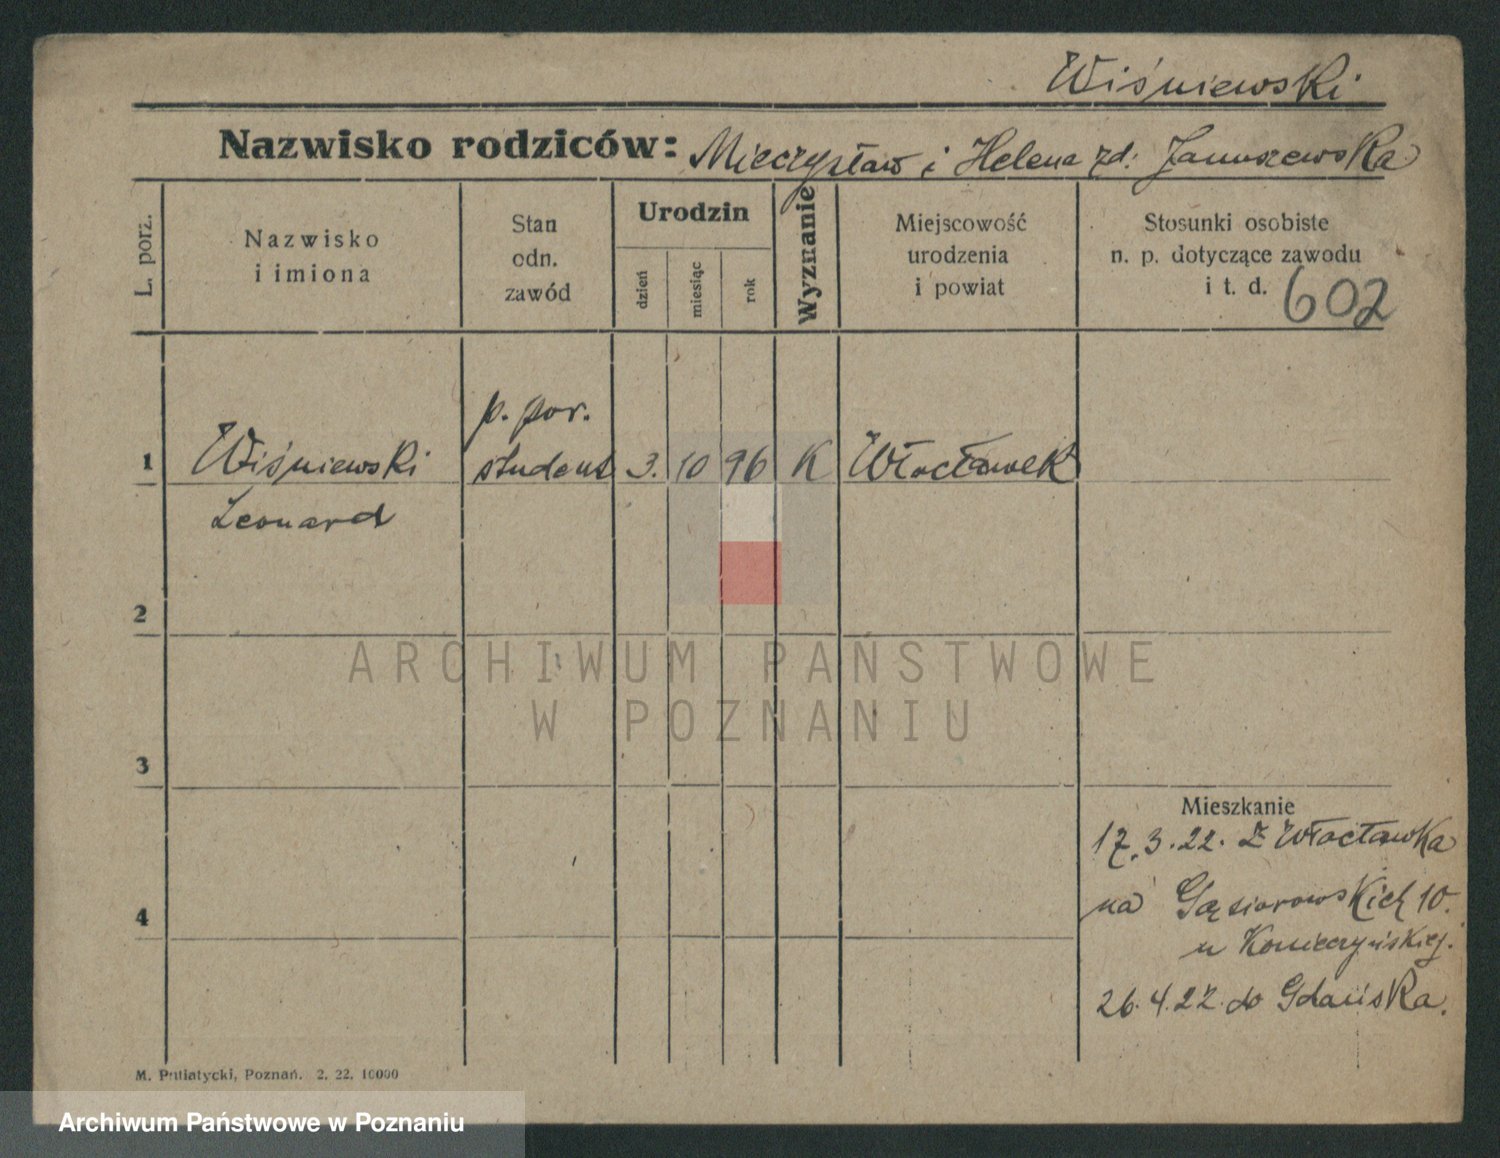 Wiśniewski
Nazwisko rodziców: Mieczysław i Helena zd: Januszewska
L. porz.
Nazwisko
i imiona
Stan
odn.
zawód
Urodzin
dzień
miesiąc
rok
Wyznanie
Miejscowość
urodzenia
i powiat
Stosunki osobiste
n. p. dotyczące zawodu
i t. d.
602
p. por.
1 Wiśniewski student 3. 10 96 K Włocławek
Leonard
2
ARCHIWUM PAŃSTWOWE
W POZNANIU
3
Mieszkanie
17.3.22. z Włocławka
4
na Gąsiorowskich 10.
u Konieczyńskiej.
26.4.22. do Gdańska.
M. Putiatycki, Poznań. 2. 22. 10000
Archiwum Państwowe w Poznaniu